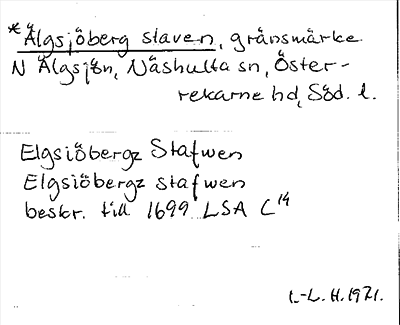 *Älgsjöberg staven, gränsmärke
N Älgsjön, Näshulta sn, Öster-
rekarne hd, Söd. l.
Elgsiöbergz Stafwen
Elgsiöbergz stafwen
beskr. till 1699 LSA C14
L.-L. H. 1971.